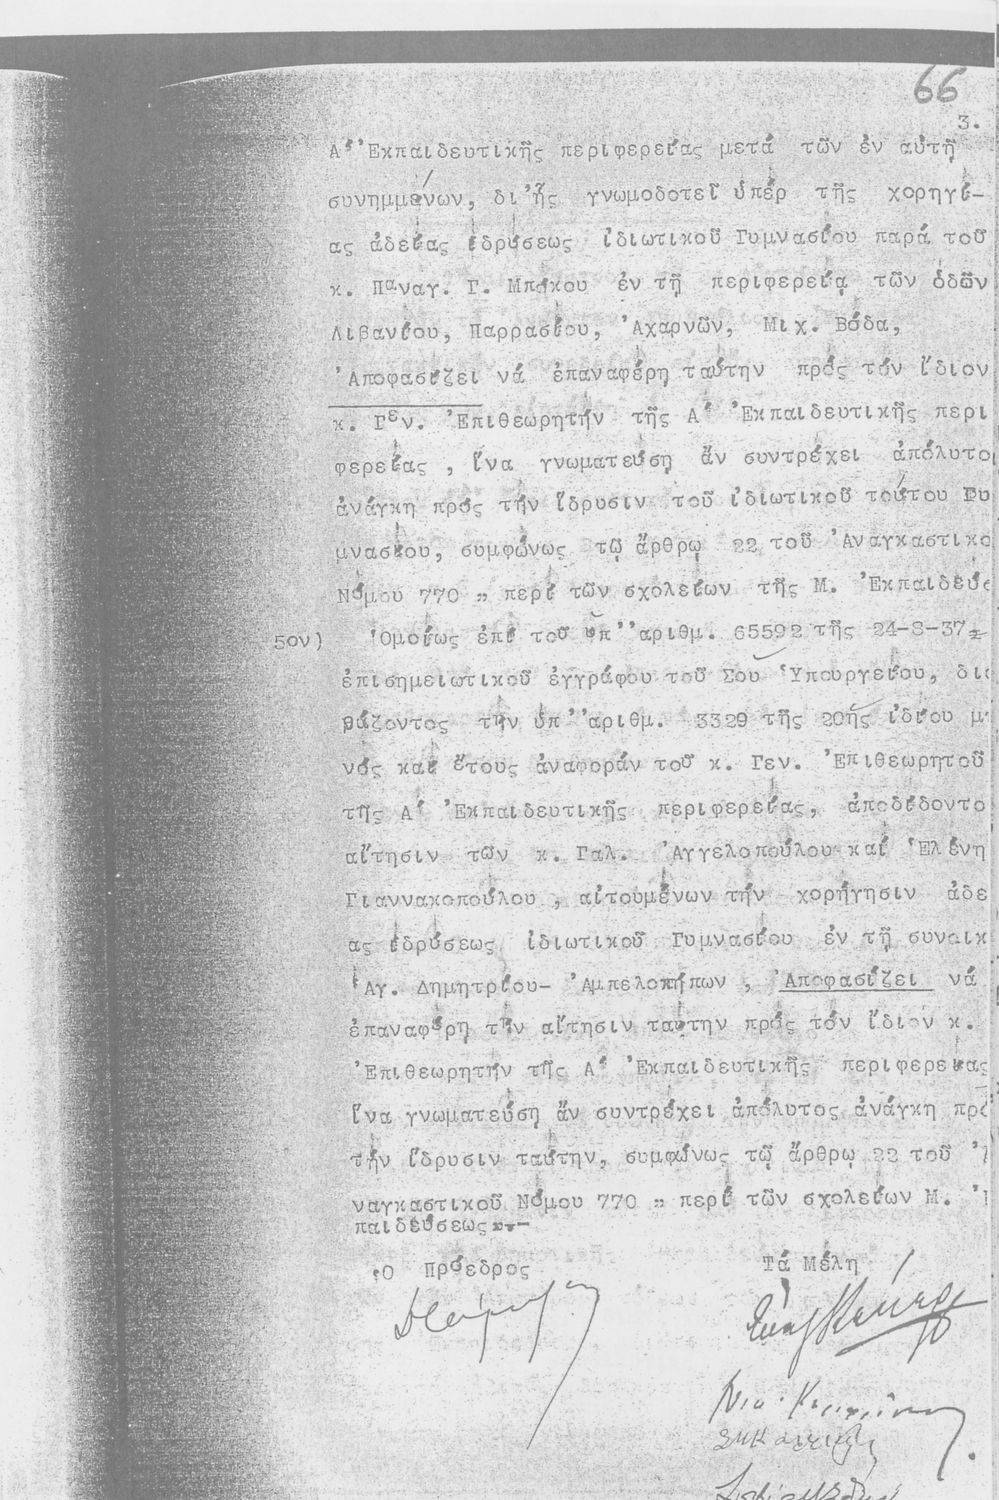 66
3.
Α΄ Ἐκπαιδευτικῆς περιφερείας μετά τῶν ἐν αὐτῇ
συνημμένων, δι᾽ἧς γνωμοδοτεῖ ὑπέρ τῆς χορηγί-
ας ἀδείας ἱδρύσεως ἰδιωτικοῦ Γυμνασίου παρά τοῦ
κ. Παναγ. Γ. Μπάκου ἐν τῇ περιφερείᾳ τῶν ὁδῶν
Λιβανίου, Παρρασίου, Ἀχαρνῶν, Μιχ. Βόδα,
Ἀποφασίζει νά ἐπαναφέρῃ ταύτην πρός τόν ἴδιον
κ. Γεν. Ἐπιθεωρητήν τῆς Α΄ Ἐκπαιδευτικῆς περι
φερείας , ἵνα γνωματεύσῃ ἄν συντρέχει ἀπόλυτο
ἀνάγκη πρός τήν ἵδρυσιν τοῦ ἰδιωτικοῦ τούτου Γυ
μνασίου, συμφώνως τῷ ἄρθρῳ 22 τοῦ Ἀναγκαστικο
Νόμου 770 " περί τῶν σχολείων τῆς Μ. Ἐκπαιδεύσ
5ον) Ὁμοίως ἐπί τοῦ ὑπ᾽᾽ἀριθμ. 65592 τῆς 24-8-37
ἐπισημειωτικοῦ ἐγγράφου τοῦ Σοῦ Ὑπουργείου, δια
βάζοντος τήν ὑπ᾽᾽ἀριθμ. 3329 τῆς 20ῆς ἰδίου μη
νός καί ἔτους ἀναφοράν τοῦ κ. Γεν. Ἐπιθεωρητοῦ
τῆς Α΄ Ἐκπαιδευτικῆς περιφερείας, ἀποδίδοντο
αἴτησιν τῶν κ. Γαλ. Ἀγγελοπούλου καί Ἑλένη
Γιαννακοπούλου , αἰτουμένων τήν χορήγησιν ἀδε
ας ἱδρύσεως ἰδιωτικοῦ Γυμνασίου ἐν τῇ συνοικ
Ἁγ. Δημητρίου- Ἀμπελοκήπων , Ἀποφασίζει νά
ἐπαναφέρῃ τήν αἴτησιν ταύτην πρός τόν ἴδιον κ.
Ἐπιθεωρητήν τῆς Α΄ Ἐκπαιδευτικῆς περιφερείας
ἵνα γνωματεύσῃ ἄν συντρέχει ἀπόλυτος ἀνάγκη πρό
τήν ἵδρυσιν ταύτην, συμφώνως τῷ ἄρθρῳ 22 τοῦ Ἀ
ναγκαστικοῦ Νόμου 770 " περί τῶν σχολείων Μ.
παιδεύσεως".-
Ὁ Πρόεδρος Τά Μέλη